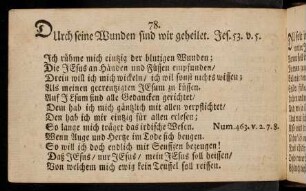 78.
DUrch seine Wunden sind wir geheilet. Jes. 53. v. 5.
Ich rühme mich eintzig der blutigen Wunden;
Die JEsus an Händen und Füssen empfunden/
Drein will ich mich wickeln/ ich will sonst nichts wissen;
Als meinen gecreutzigten JEsum zu küssen.
Auf JEsum sind alle Gedancken gerichtet/
Dem hab ich mich gäntzlich mit allen verpflichtet/
Den hab ich mir eintzig für allen erlesen;
So lange mich träget das irdische Wesen. Num. 463. v. 2. 7. 8.
Wenn Auge und Hertze im Tode sich beugen.
So will ich doch endlich mit Seuffzen bezeugen!
Daß JEsus/ nur JEsus/ mein JEsus soll heissen/
Von welchem mich ewig kein Teuffel soll reissen.